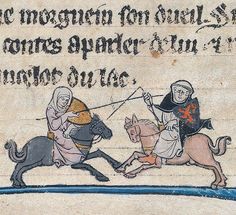 morguein son dueil. Si
contes a parler de lui et
ancelot du lac.